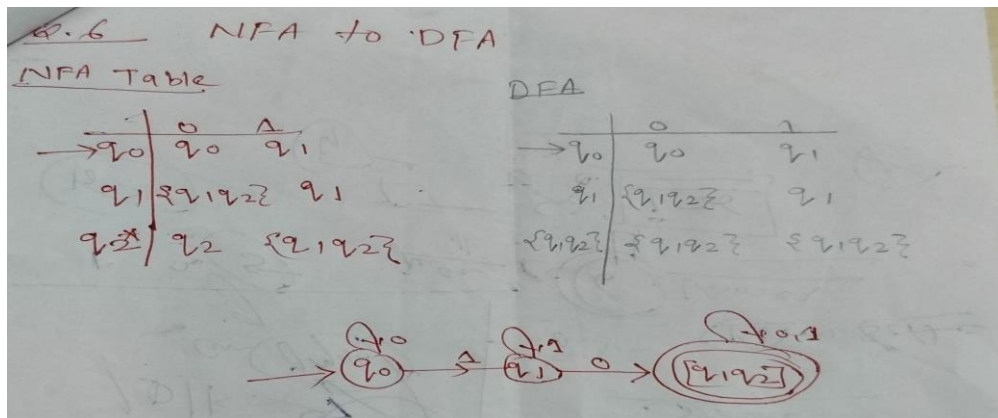 Q.6 NFA to DFA
NFA Table
0 1
→q0 q0 q1
q1 {q1q2} q1
q2* q2 {q1q2}
DFA
0 1
→q0 q0 q1
q1 {q1q2} q1
{q1q2} {q1q2} {q1q2}
0 1 0,1
→ q0 1 → q1 0 → [q1q2]